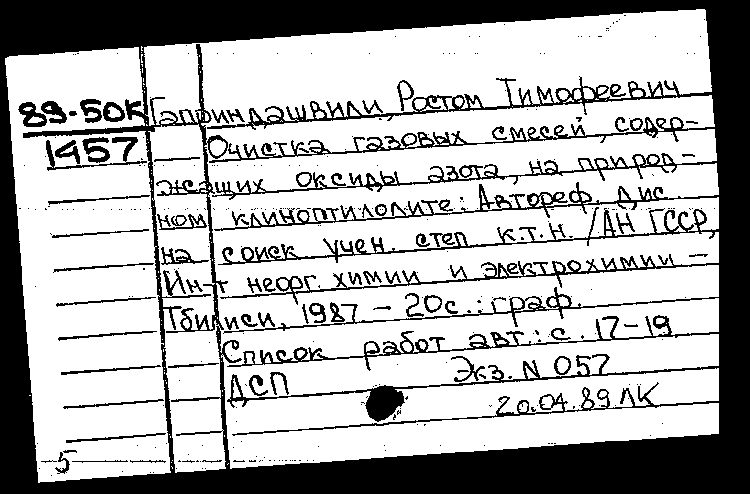 89-50К Гаприндашвили, Ростом Тимофеевич
1457 Очистка газовых смесей, содер-
жащих оксиды азота, на природ-
ном клиноптилолите: Автореф. дис
на соиск учен. степ к.т.н. /АН ГССР,
Ин-т неорг. химии и электрохимии –
Тбилиси, 1987 – 20с.: граф.
Список работ авт.: с. 17-19
ДСП Экз. N 057
20.04.89 ЛК
5